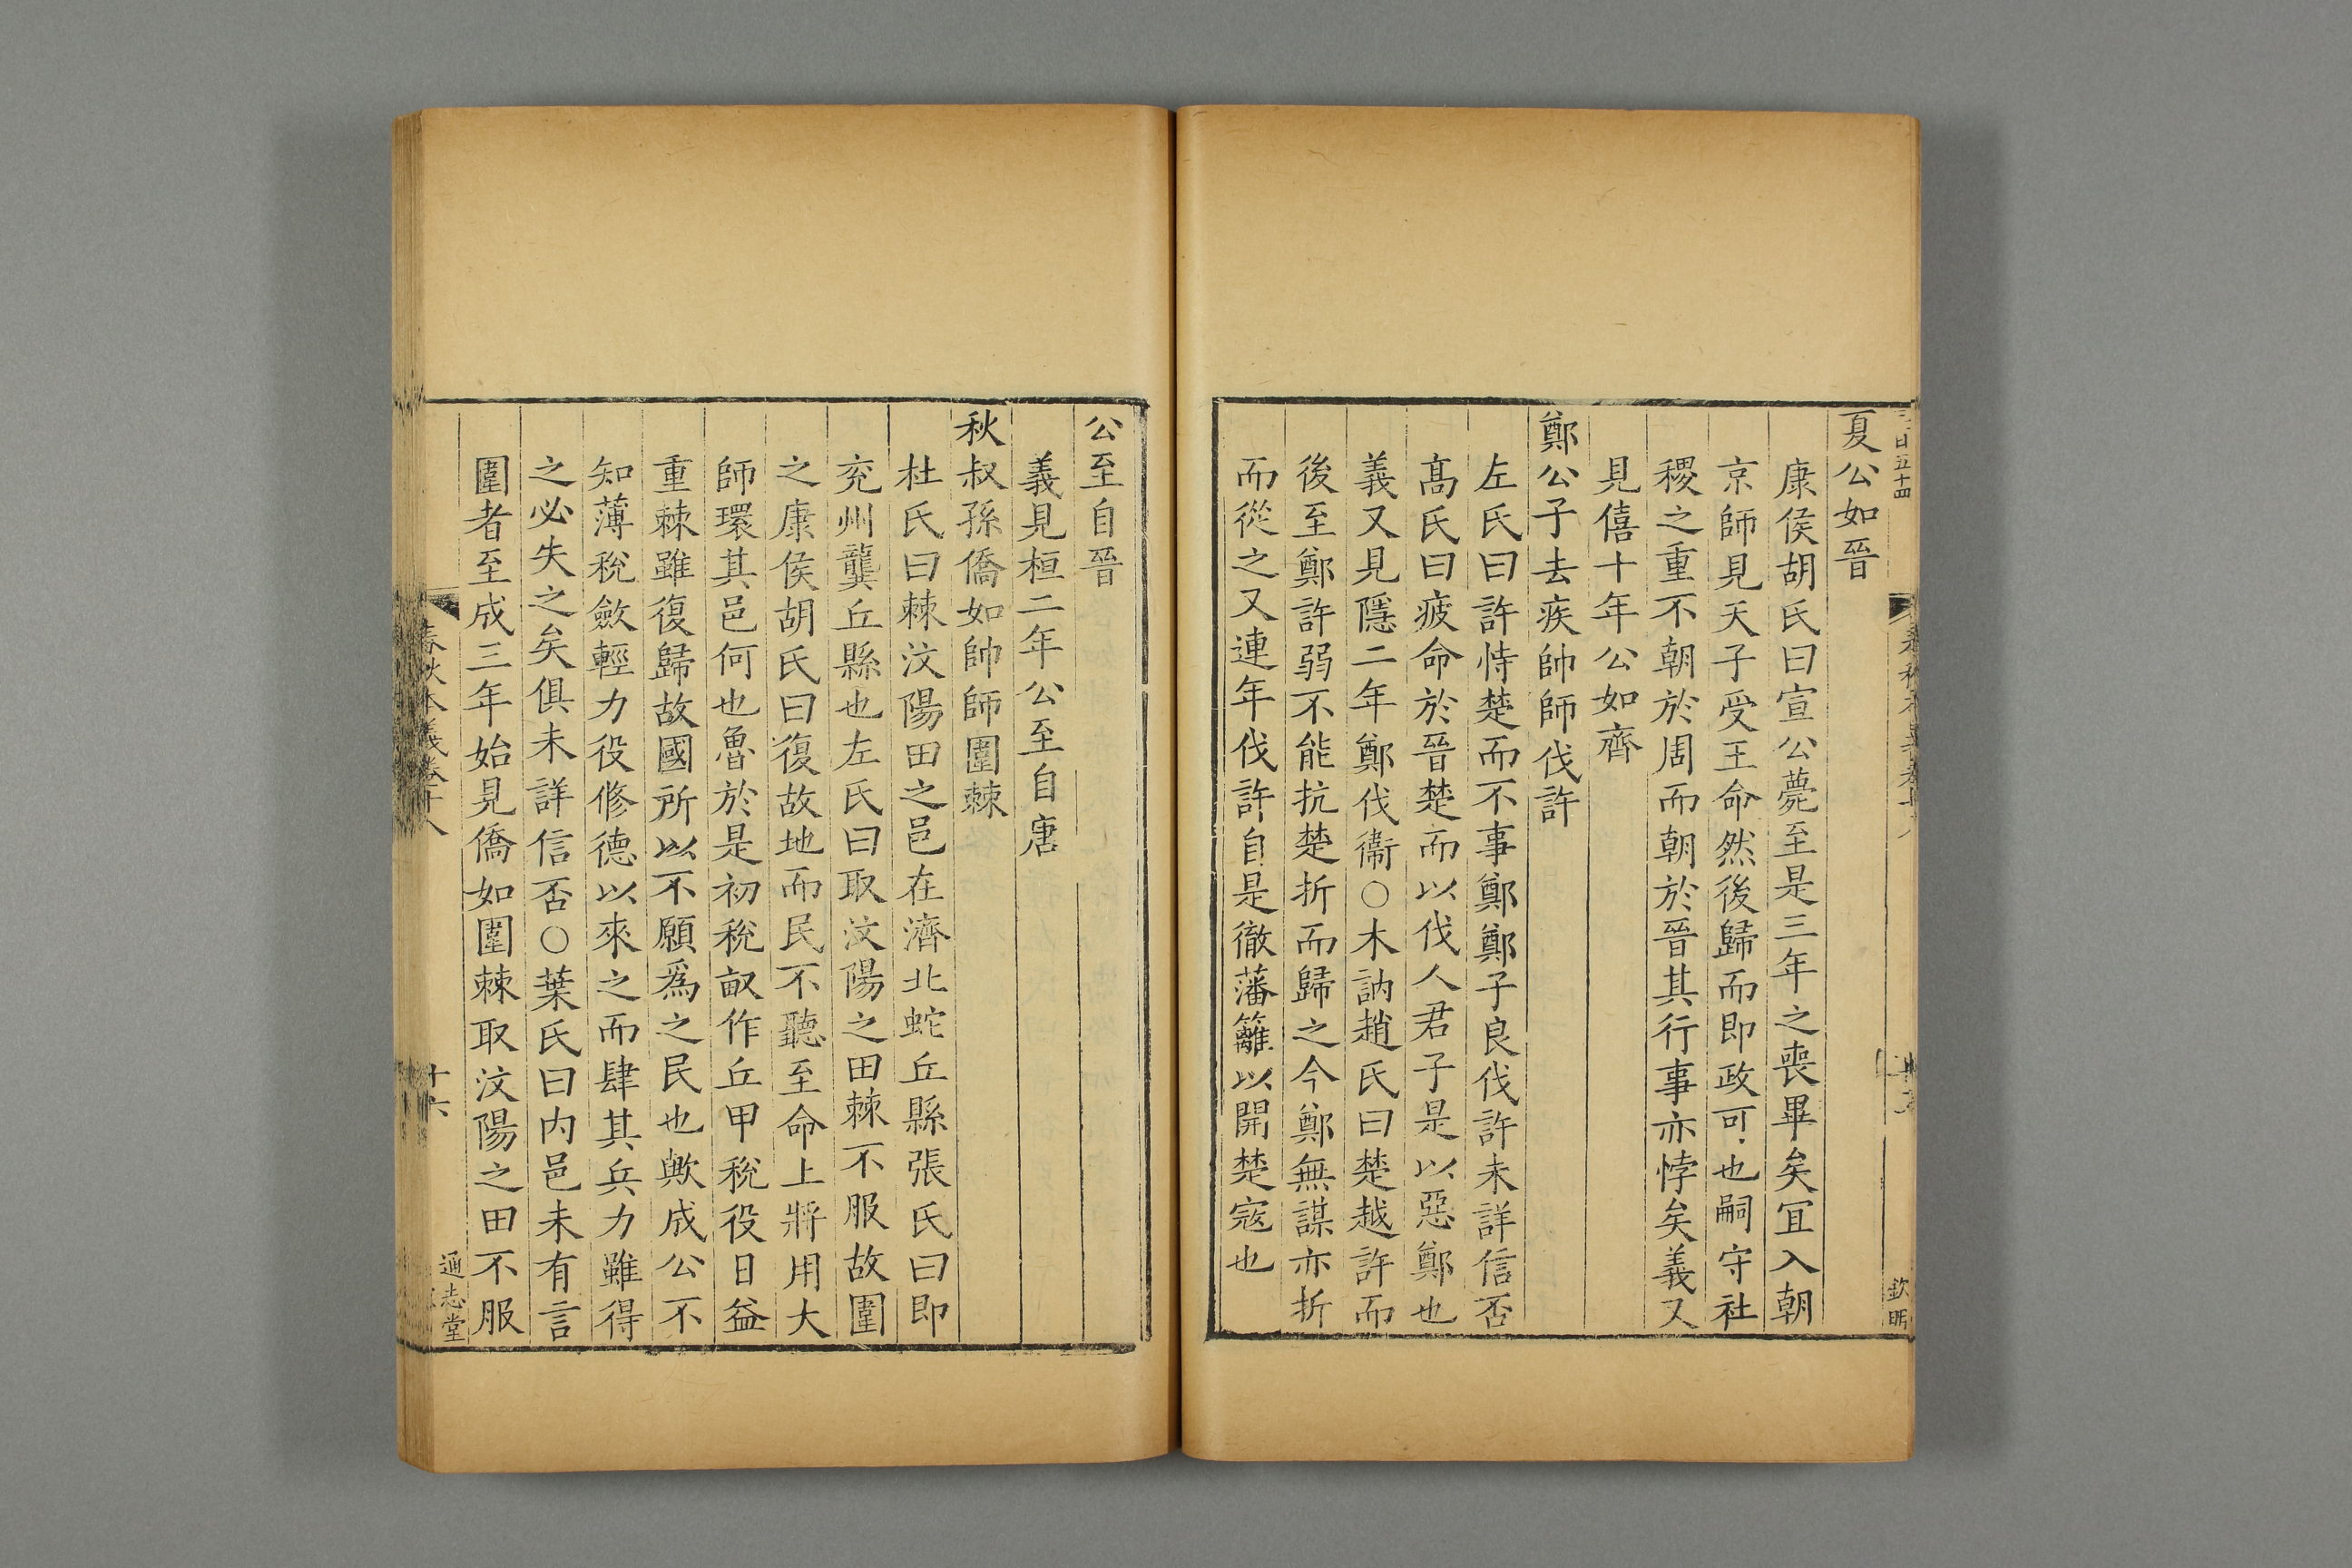 五十四
夏公如晉
康侯胡氏曰宣公薨至是三年之喪畢矣冝入朝
京師見天子受王命然後歸而即政可也嗣守社
稷之重不朝於周而朝於晉其行事亦悖矣義又
見僖十年公如齊
鄭公子去疾帥師伐許
左氏曰許恃楚而不事鄭鄭子良伐許未詳信否
髙氏曰疲命於晉楚而以伐人君子是以惡鄭也
義又見隱二年鄭伐衞○木訥趙氏曰楚越許而
後至鄭許弱不能抗楚折而歸之今鄭無謀亦折
而從之又連年伐許自是徹藩籬以開楚寇也
欽明
公至自晉
義見桓二年公至自唐
秋叔孫僑如帥師圍棘
杜氏曰棘汶陽田之邑在濟北蛇丘縣張氏曰即
兖州龔丘縣也左氏曰取汶陽之田棘不服故圍
之康侯胡氏曰復故地而民不聽至命上將用大
師環其邑何也魯於是初稅畝作丘甲稅役日益
重棘雖復歸故國所以不願爲之民也歟成公不
知薄稅斂輕力役修德以來之而肆其兵力雖得
之必失之矣俱未詳信否○葉氏曰内邑未有言
圍者至成三年始見僑如圍棘取汶陽之田不服
春秋本義卷十八
十六
通志堂